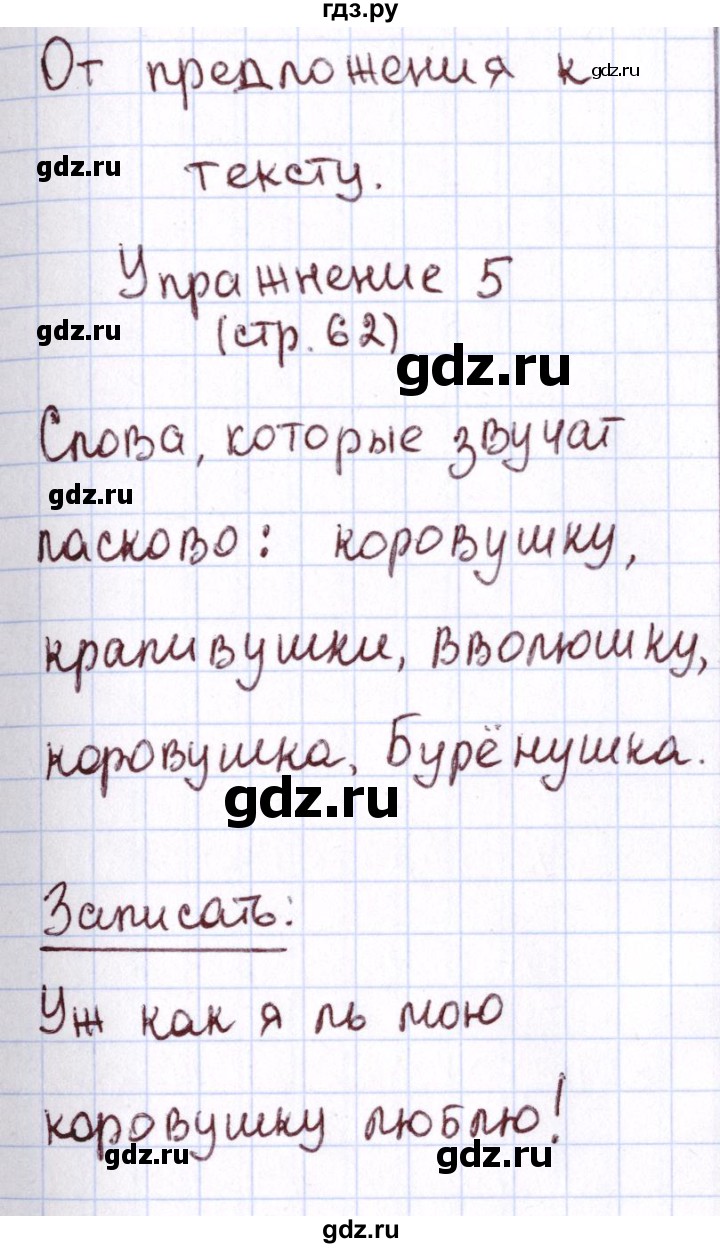 гдз.ру
От предложения к gdz.ru
gdz.ru тексту.
Упражнение 5
gdz.ru (стр. 62) gdz.ru
Слова, которые звучат
gdz.ru
ласково: коровушку,
крапивушки, вволюшку,
коровушка, Бурёнушка.
gdz.ru
Записать:
Уж как я ль мою
коровушку люблю!
gdz.ru gdz.ru
gdz.ru